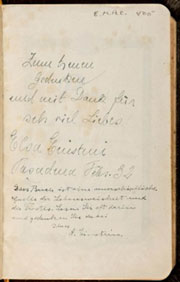 E.M.H.E. 425
Zum neuen
Gedenktag
und mit Dank für
sehr viel Liebes
Elsa Einstein
Pasadena Febr. 32
Dies Buch ist eine unerschöpfliche
Quelle der Lebensweisheit und
des Trostes. Lesen Sie oft darin
und gedenken Ihr dabei
Ihres
A. Einstein.